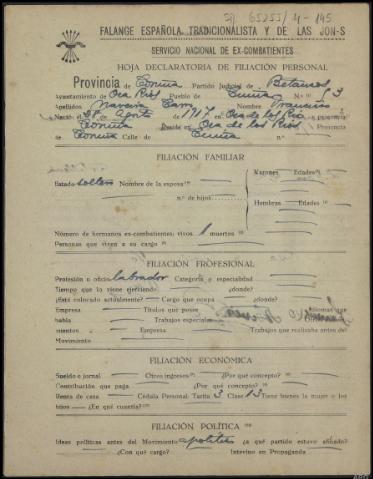 65253/4-145
FALANGE ESPAÑOLA TRADICIONALISTA Y DE LAS JON-S
SERVICIO NACIONAL DE EX-COMBATIENTES
HOJA DECLARATORIA DE FILIACIÓN PERSONAL
Provincia de Coruña Partido Judicial de Betanzos
Ayuntamiento de Oza Rios Pueblo de Cuiña N.º 53
Apellidos Naveira Nombre Francisco
Nació el 28 Agosto de 1917 en Oza de los Rios
Coruña Reside en Oza de los Rios Provincia
de Coruña Calle de Cuiña n.º
FILIACIÓN FAMILIAR
Varones Edades
Estado soltero Nombre de la esposa
n.º de hijos
Hembras Edades
Número de hermanos ex-combatientes; vivos 1 muertos
Personas que viven a su cargo
FILIACIÓN PROFESIONAL
Profesión u oficio labrador Categoría o especialidad
Tiempo que lo viene ejerciendo ¿donde?
¿Está colocado actualmente? Cargo que ocupa ¿donde?
Empresa Títulos que posee Idiomas que
habla Trabajos especiales
mientos Empresa Trabajos que realizaba antes del
Movimiento
FILIACIÓN ECONÓMICA
Sueldo o jornal Otros ingresos ¿Por qué concepto?
Contribución que paga ¿Por qué concepto?
Renta de casa Cédula Personal Tarifa 3 Clase 13 Tiene bienes la mujer o los
hijos ¿En qué cuantía?
FILIACIÓN POLÍTICA
Ideas políticas antes del Movimiento apolítico ¿a qué partido estuvo afiliado?
¿Con qué cargo? Intervino en Propaganda